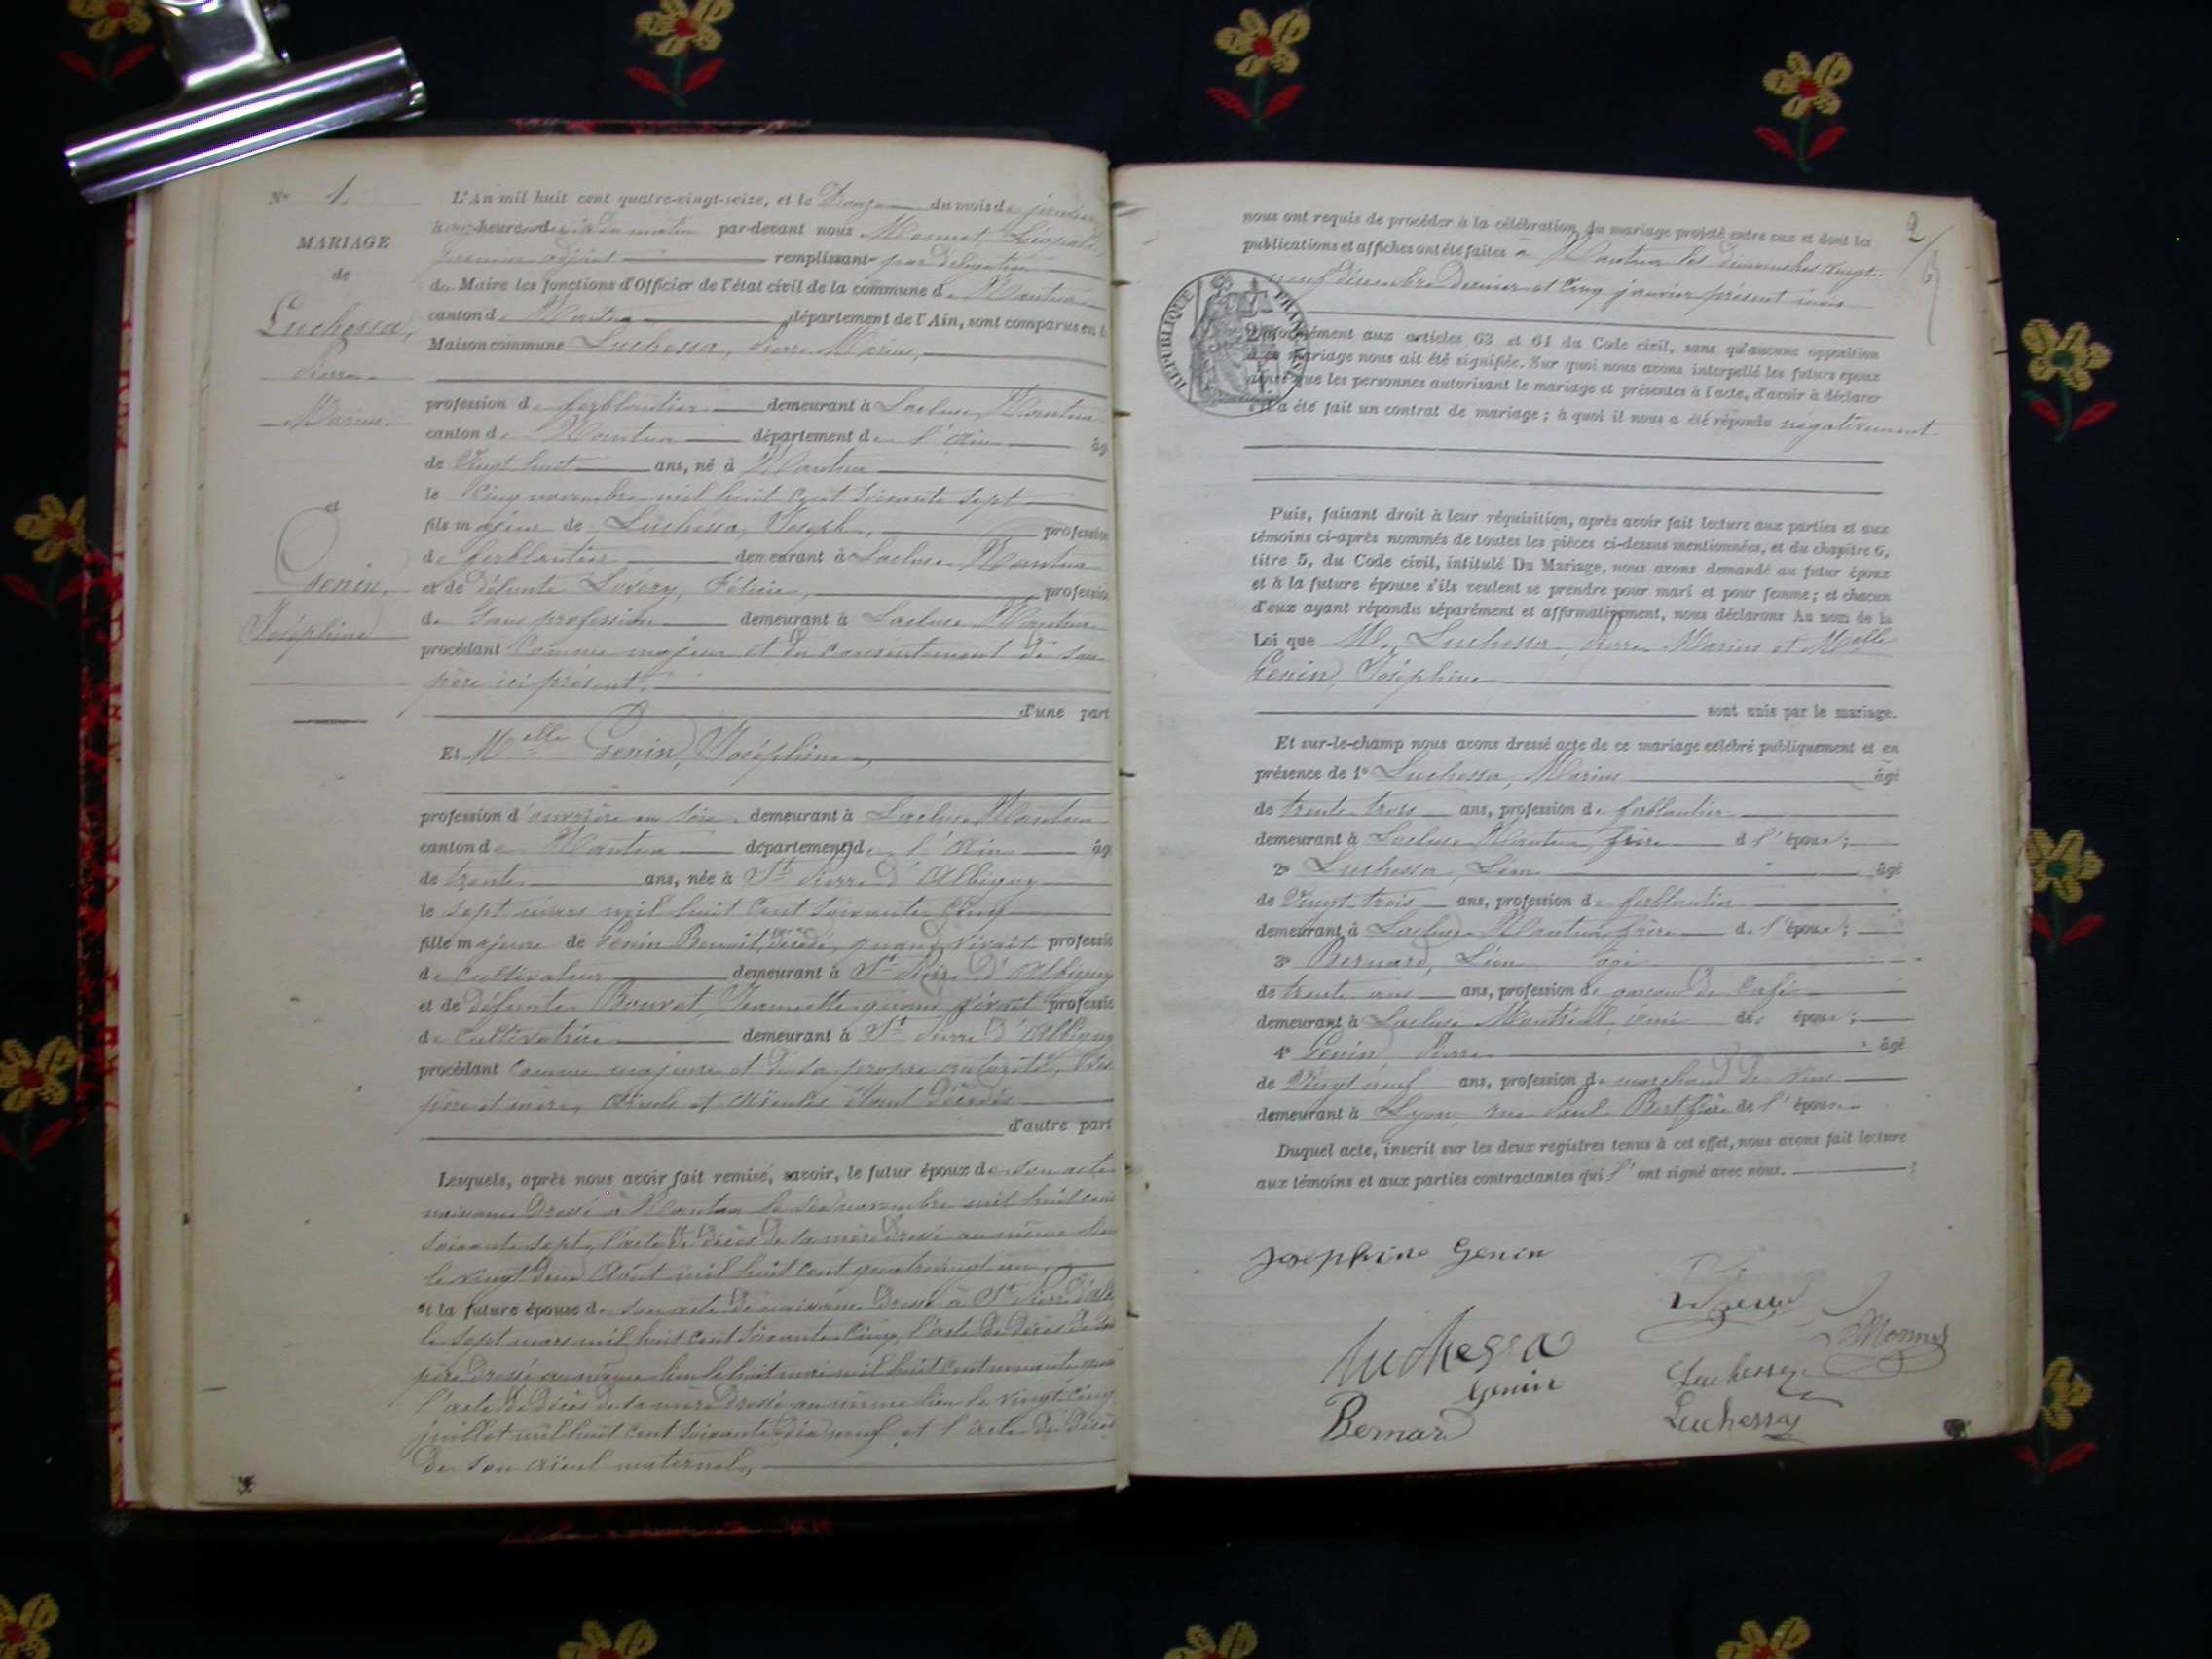 N° 1.
MARIAGE
de
Luchessa,
Pierre
Marius.
et
Genin,
Joséphine
L'An mil huit cent quatre-vingt-seize, et le Douze du mois de janvier,
à heures du matin par-devant nous Monnet, Léopold,
premier adjoint remplissant par délégation
du Maire les fonctions d'Officier de l'état civil de la commune de Nantua
canton de Nantua département de l'Ain, sont comparus en la
Maison commune Luchessa, Pierre Marius,
profession de ferblantier demeurant à Lacluse, Nantua
canton de Nantua département de l'Ain âgé
de Vingt huit ans, né à Nantua
le Cinq novembre mil huit cent soixante sept
fils majeur de Luchessa, Joseph, profession
de ferblantier demeurant à Lacluse Nantua
et de défunte Félicie, profession
de Sans profession demeurant à Lacluse Nantua
procédant Comme majeur et du consentement de son
père ici présent.
d'une part
Et Melle Genin, Joséphine,
profession d'ouvrière en soie demeurant à Lacluse Nantua
canton de Nantua département de l'Ain âgé
de trente ans, née à St Pierre d'Albigny
le sept mars mil huit cent soixante cinq
fille majeure de Genin Benoit, décédé, quand vivait profession
de Cultivateur demeurant à St Pierre d'Albigny
et de défunte Bouvet, Jeannette quand vivait profession
de Cultivatrice demeurant à St Pierre d'Albigny
procédant Comme majeure et de sa propre autorité, Ses
père et mère, aïeuls et aïeules étant décédés
d'autre part
Lesquels, après nous avoir fait remise, savoir, le futur époux de son acte
naissance dressé à Nantua le six novembre mil huit cent
soixante sept, l'acte de décès de sa mère dressé au même lieu
le vingt deux Août mil huit cent quatrevingt un,
et la future épouse de son acte de naissance dressé à St Pierre d'Alb
le sept mars mil huit cent soixante cinq, l'acte de décès de son
père dressé au même lieu le huit mai mil huit cent nonante
l'acte de décès de sa mère dressé au même lieu le vingt cinq
juillet mil huit cent soixante dix neuf et l'acte de décès
de son aïeul maternel,
2
nous ont requis de procéder à la célébration du mariage projeté entre eux et dont les
publications et affiches ont été faites à Nantua les dimanches vingt-
neuf décembre dernier et Cinq janvier présent mois
RÉPUBLIQUE FRANÇAISE
Conformément aux articles 63 et 64 du Code civil, sans qu'aucune opposition
à ce mariage nous ait été signifiée. Sur quoi nous avons interpellé les futurs époux
ainsi que les personnes autorisant le mariage et présentes à l'acte, d'avoir à déclarer
s'il a été fait un contrat de mariage ; à quoi il nous a été répondu négativement
Puis, faisant droit à leur réquisition, après avoir fait lecture aux parties et aux
témoins ci-après nommés de toutes les pièces ci-dessus mentionnées, et du chapitre 6,
titre 5, du Code civil, intitulé Du Mariage, nous avons demandé au futur époux
et à la future épouse s'ils veulent se prendre pour mari et pour femme ; et chacun
d'eux ayant répondu séparément et affirmativement, nous déclarons Au nom de la
Loi que M. Luchessa, Pierre Marius et Melle
Genin, Joséphine
sont unis par le mariage.
Et sur-le-champ nous avons dressé acte de ce mariage célébré publiquement et en
présence de 1° Luchessa, Marius âgé
de trente trois ans, profession de ferblantier
demeurant à Lacluse Nantua, frère d l'époux ;
2° Luchessa, Léon âgé
de Vingt trois ans, profession de ferblantier
demeurant à Lacluse Nantua, frère de l'époux ;
3° Bernard, Léon âgé
de trente ans, profession de garçon de Café
demeurant à Lacluse Montréal, ami des époux ;
4° Genin Pierre âgé
de Vingt neuf ans, profession de marchand de vins
demeurant à Lyon, rue Paul Bert frère de l'épouse
Duquel acte, inscrit sur les deux registres tenus à cet effet, nous avons fait lecture
aux témoins et aux parties contractantes qui l'ont signé avec nous.
Josephine Genin
Luchessa
Monnet
Genin
Luchessa
Bernard
Luchessa